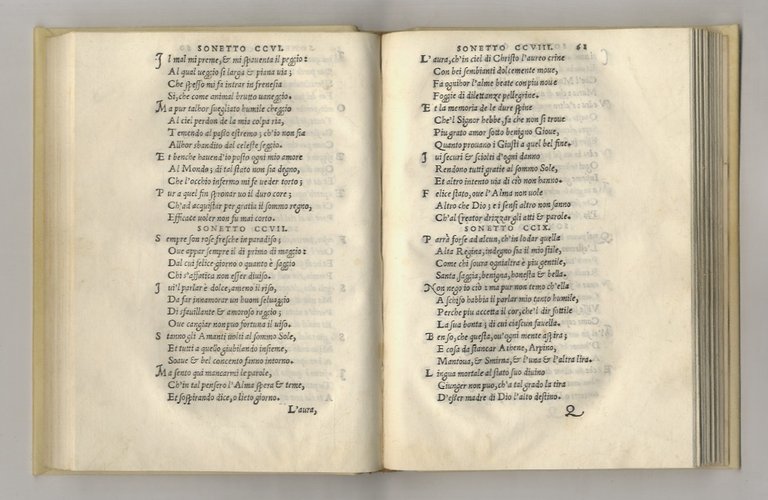 SONETTO CCVI.
Il mal mi preme, & mi spauenta il peggio:
Al qual ueggio sì larga & piana uia;
Che spesso mi fa intrar in frenesia
Si, che come animal brutto uaneggio.
Ma pur talhor suegliato humile cheggio
Al ciel perdon de la mia colpa ria,
Temendo al passo estremo; ch'io non sia
Allhor sbandito dal celeste seggio.
Et benche hauend'io posto ogni mio amore
Al Mondo; di tal stato non sia degno,
Che l'occhio infermo mi fe ueder torto;
Pur a quel fin spronar uo il duro core;
Ch'ad acquistar per gratia il sommo regno,
Efficace uoler non fu mai corto.
SONETTO CCVII.
Sempre son rose fresche in paradiso;
Oue appar sempre il dì primo di maggio:
Dal cui felice giorno o quanto è saggio
Chi s'affatica non esser diuiso.
Iui'l parlar è dolce, ameno il riso,
Da far innamorar un huom seluaggio
Di sfauillante & amoroso raggio;
Oue cangiar non puo fortuna il uiso.
Stanno gli Amanti uolti al sommo Sole,
Et tutti a quello giubilando insieme,
Soaue & bel concento fanno intorno.
Ma sento già mancarmi le parole,
Ch'in tal pensero l'Alma spera & teme,
Et sospirando dice, o lieto giorno.
L'aura,
SONETTO CCVIII. 62
L'aura, ch'in ciel di Christo l'aureo crine
Con bei sembianti dolcemente moue,
Fa ognihor l'alme beate con piu noue
Foggie di dilettanze pellegrine.
Et la memoria de le dure spine
Che'l Signor hebbe, fa che non si troue
Piu grato amor sotto benigno Gioue,
Quanto prouano i Giusti a quel bel fine.
Iui securi & sciolti d'ogni danno
Rendono tutti gratie al sommo Sole,
Et altro intento uia di ciò non hanno.
Felice stato, oue l'Alma non uole
Altro che Dio; e i sensi altro non sanno
Ch'al Creator drizzar gli atti & parole.
SONETTO CCIX.
Parrà forse ad alcun, ch'in lodar quella
Alta Regina, indegno sia il mio stile,
Come chi sura ogni altra è piu gentile,
Santa, saggia, benigna, honesta & bella.
Non nego io ciò: ma pur non temo ch'ella
A schiso habbia il parlar mio tanto humile,
Perche piu accetta il cor, che'l dir sottile
La sua bontà; di cui ciascun fauella.
Ben so, che questa, ou'ogni mente aspira;
E cosa da stancar Athene, Arpino,
Mantoua, & Smirna, & l'una & l'altra lira.
Lingua mortale al stato suo diuino
Giunger non puo, ch'a tal grado la tira
D'esser madre di Dio l'alto destino.
Q